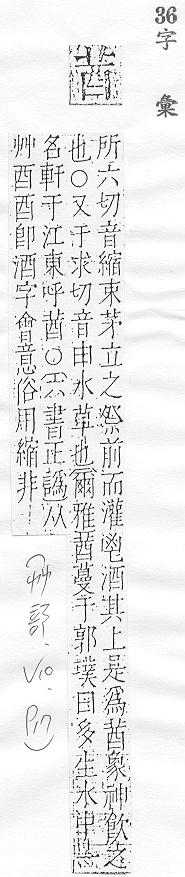 36
字彙
莤
所六切音縮束茅立之祭前而灌鬯酒其上是爲莤象神飲之
也○又于求切音由水草也爾雅莤蔓于郭璞曰多生水中一
名軒于江東呼莤○六書正譌从
艸酉酉卽酒字會意俗用縮非
(艸部. V10. P17)